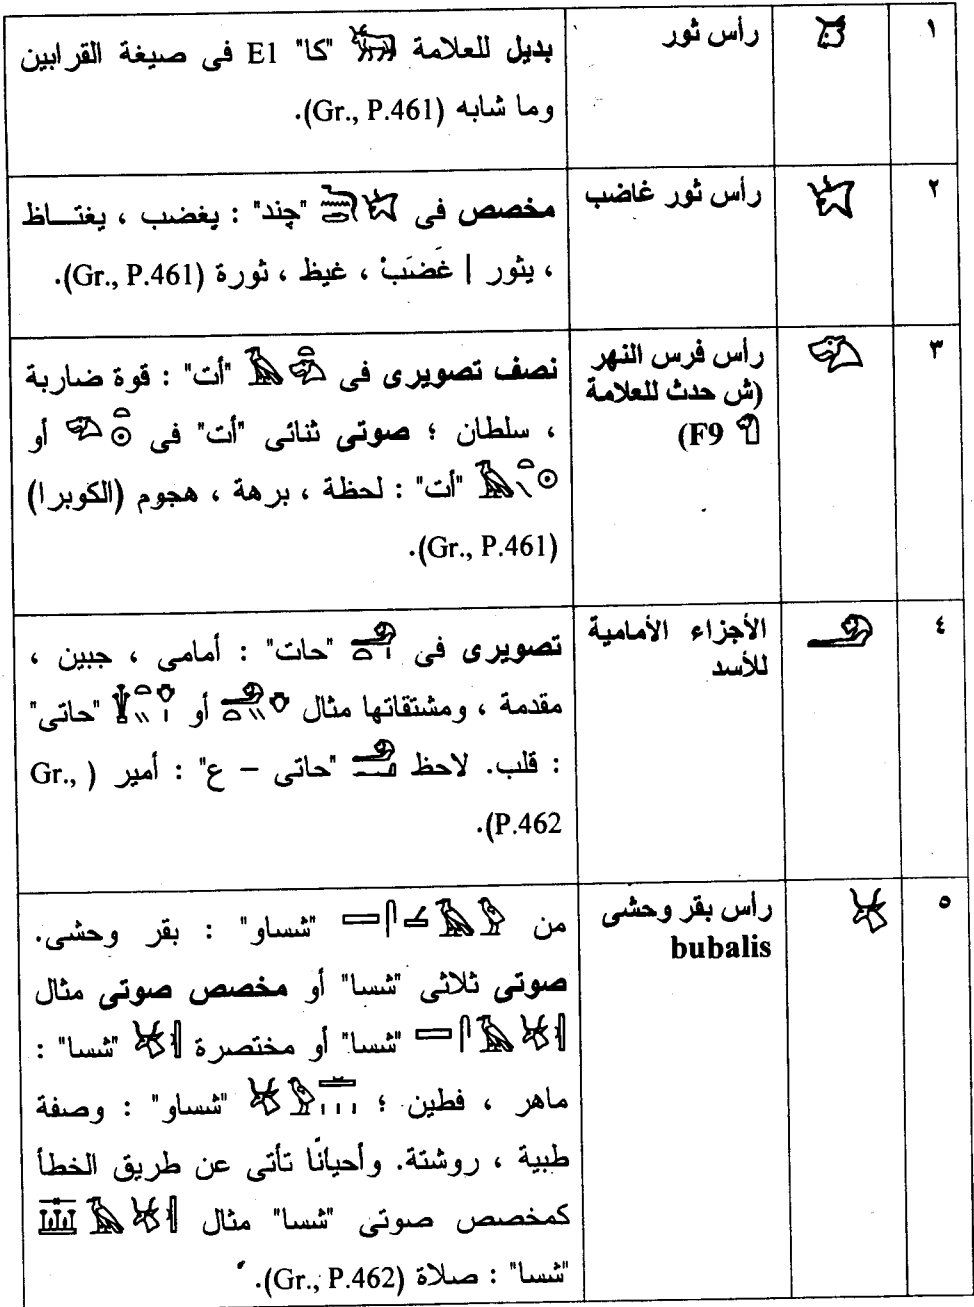 ١ رأس ثور بديل للعلامة 𓃒 "كا" E1 فى صيغة القرابين
وما شابه (Gr., P.461).
٢ رأس ثور غاضب مخصص فى "چند" : يغضب ، يغتـــاظ
، يثور | غَضَبْ ، غيظ ، ثورة (Gr., P.461).
٣ رأس فرس النهر
(ش حدث للعلامة
F9)
نصف تصويرى فى "أت" : قوة ضاربة
، سلطان ؛ صوتى ثنائى "أت" فى أو
"أت" : لحظة ، برهة ، هجوم (الكوبرا)
(Gr., P.461).
٤ الأجزاء الأمامية
للأسد
تصويرى فى "حات" : أمامى ، جبين ،
مقدمة ، ومشتقاتها مثال أو "حاتى"
: قلب. لاحظ "حاتى – ع" : أمير (Gr.,
P.462).
٥ رأس بقر وحشى
bubalis
من "شساو" : بقر وحشى.
صوتى ثلاثى "شسا" أو مخصص صوتى مثال
"شسا" أو مختصرة "شسا" :
ماهر ، فطين ؛ "شساو" : وصفة
طبية ، روشتة. وأحيانًا تأتى عن طريق الخطأ
كمخصص صوتى "شسا" مثال
"شسا" : صلاة (Gr., P.462).